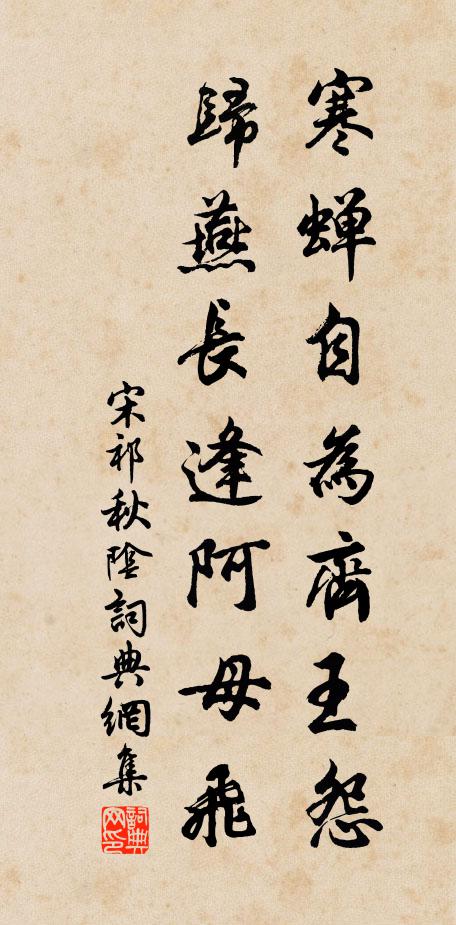 寒蝉自為齊王怨
歸燕長逢阿母飛
宋祁秋陰詞典網集
詞典网印